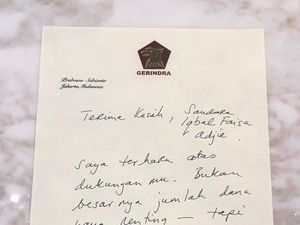 GERINDRA
Prabowo Subianto
Jakarta, Indonesia
Terima Kasih, Saudara
Iqbal Faisa
Adjie.
Saya terharu atas
dukungan mu. Bukan
besar nya jumlah dana
yang penting — tapi